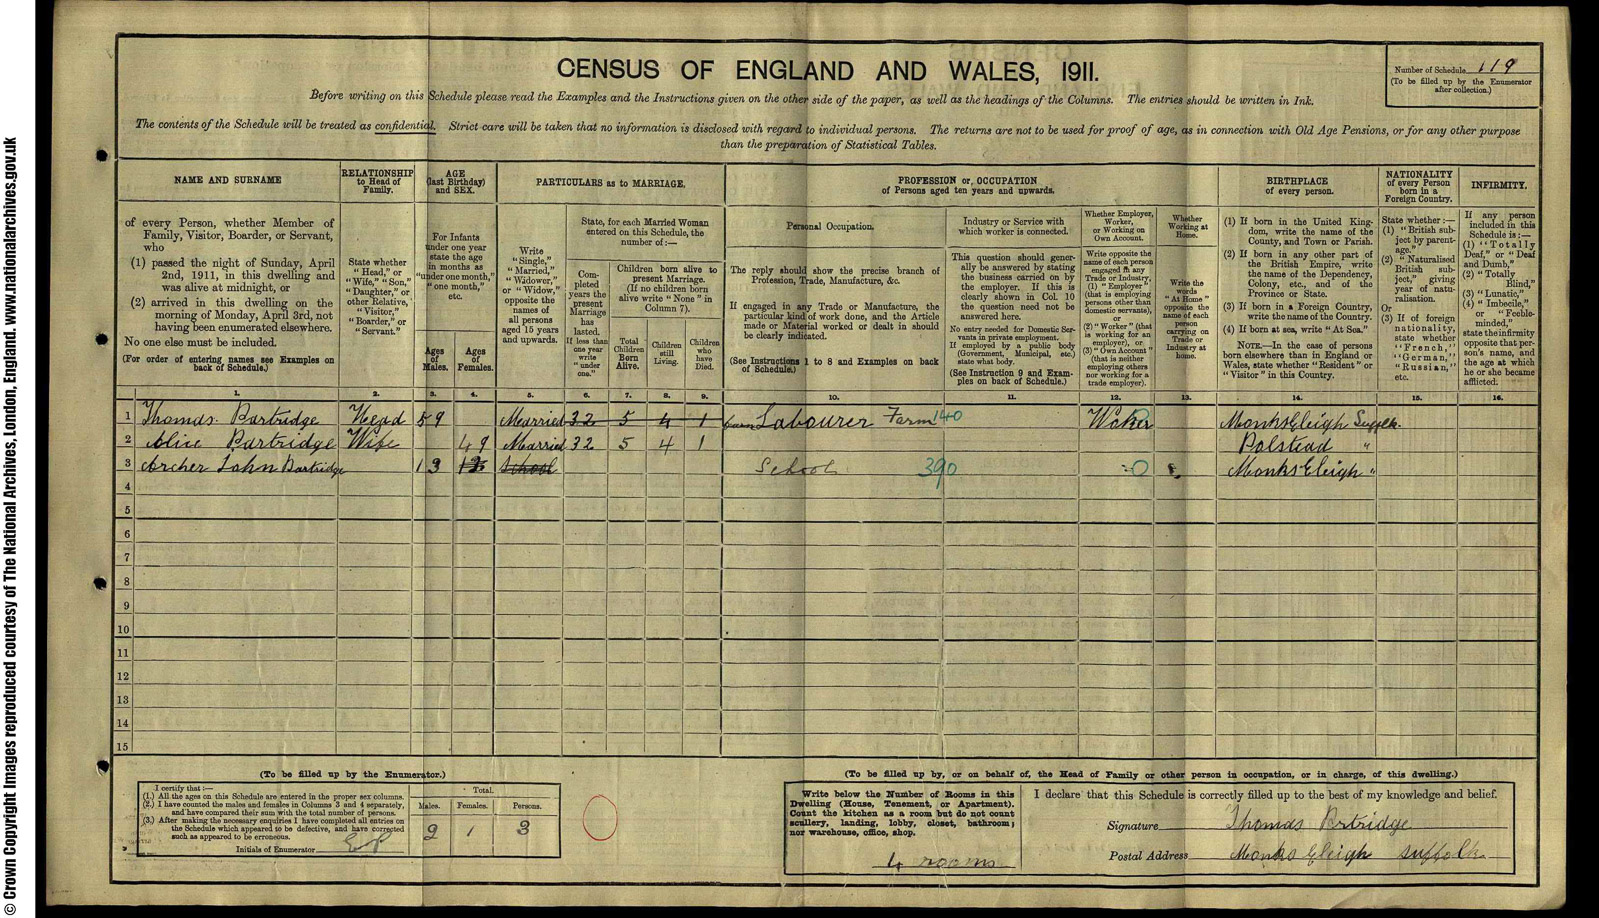 © Crown Copyright Images reproduced courtesy of The National Archives, London, England. www.nationalarchives.gov.uk
CENSUS OF ENGLAND AND WALES, 1911.
Number of Schedule 119
(To be filled up by the Enumerator
after collection.)
Before writing on this Schedule please read the Examples and the Instructions given on the other side of the paper, as well as the headings of the Columns. The entries should be written in Ink.
The contents of the Schedule will be treated as confidential. Strict care will be taken that no information is disclosed with regard to individual persons. The returns are not to be used for proof of age, as in connection with Old Age Pensions, or for any other purpose
than the preparation of Statistical Tables.
NAME AND SURNAME
of every Person, whether Member of
Family, Visitor, Boarder, or Servant,
who
(1) passed the night of Sunday, April
2nd, 1911, in this dwelling and
was alive at midnight, or
(2) arrived in this dwelling on the
morning of Monday, April 3rd, not
having been enumerated elsewhere.
No one else must be included.
(For order of entering names see Examples on
back of Schedule.)
RELATIONSHIP
to Head of
Family.
State whether
"Head," or
"Wife," "Son,"
"Daughter," or
other Relative,
"Visitor,"
"Boarder," or
"Servant."
AGE
(last Birthday)
and SEX.
For Infants
under one year
state the age
in months as
"under one month,"
"one month,"
etc.
Ages
of
Males.
Ages
of
Females.
PARTICULARS as to MARRIAGE.
Write
"Single,"
"Married,"
"Widower,"
or "Widow,"
opposite the
names of
all persons
aged 15 years
and upwards.
State, for each Married Woman
entered on this Schedule, the
number of:—
Com-
pleted
years the
present
Marriage
has
lasted.
If less than
one year
write
"under
one."
Children born alive to
present Marriage.
(If no children born
alive write "None" in
Column 7).
Total
Children
Born
Alive.
Children
still
Living.
Children
who
have
Died.
PROFESSION or OCCUPATION
of Persons aged ten years and upwards.
Personal Occupation.
The reply should show the precise branch of
Profession, Trade, Manufacture, &c.
If engaged in any Trade or Manufacture, the
particular kind of work done, and the Article
made or Material worked or dealt in should
be clearly indicated.
(See Instructions 1 to 8 and Examples on back
of Schedule.)
Industry or Service with
which worker is connected.
This question should gener-
ally be answered by stating
the business carried on by
the employer. If this is
clearly shown in Col. 10
the question need not be
answered here.
No entry needed for Domestic Ser-
vants in private employment.
If employed by a public body
(Government, Municipal, etc.)
state what body.
(See Instruction 9 and Exam-
ples on back of Schedule.)
Whether Employer,
Worker,
or Working on
Own Account.
Write opposite the
name of each person
engaged in any
Trade or Industry,
(1) "Employer"
(that is employing
persons other than
domestic servants),
or
(2) "Worker" (that
is working for an
employer), or
(3) "Own Account"
(that is neither
employing others
nor working for a
trade employer).
Whether
Working at
Home.
Write the
words
"At Home"
opposite the
name of each
person
carrying on
Trade or
Industry at
home.
BIRTHPLACE
of every person.
(1) If born in the United King-
dom, write the name of the
County, and Town or Parish.
(2) If born in any other part of
the British Empire, write
the name of the Dependency,
Colony, etc., and of the
Province or State.
(3) If born in a Foreign Country,
write the name of the Country.
(4) If born at sea, write "At Sea."
NOTE.—In the case of persons
born elsewhere than in England or
Wales, state whether "Resident" or
"Visitor" in this Country.
NATIONALITY
of every Person
born in a
Foreign Country.
State whether:—
(1) "British sub-
ject by parent-
age,"
(2) "Naturalised
British sub-
ject," giving
year of natu-
ralisation.
Or
(3) If of foreign
nationality,
state whether
"French,"
"German,"
"Russian,"
etc.
INFIRMITY.
If any person
included in this
Schedule is:—
(1) "Totally
Deaf," or "Deaf
and Dumb,"
(2) "Totally
Blind,"
(3) "Lunatic,"
(4) "Imbecile,"
or "Feeble-
minded,"
state the infirmity
opposite that per-
son's name, and
the age at which
he or she became
afflicted.
1. 2. 3. 4. 5. 6. 7. 8. 9. 10. 11. 12. 13. 14. 15. 16.
1 Thomas Partridge Head 59 Married 32 5 4 1 Labourer Farm 140 Woker Monks Eleigh Suffolk
2 Alice Partridge Wife 49 Married 32 5 4 1 Polstead "
3 Archer John Partridge 13 13 School School 390 0 Monks Eleigh "
4
5
6
7
8
9
10
11
12
13
14
15
(To be filled up by the Enumerator.)
I certify that:—
(1.) All the ages on this Schedule are entered in the proper sex columns.
(2.) I have counted the males and females in Columns 3 and 4 separately,
and have compared their sum with the total number of persons.
(3.) After making the necessary enquiries I have completed all entries on
the Schedule which appeared to be defective, and have corrected
such as appeared to be erroneous.
Initials of Enumerator EP
Total.
Males. Females. Persons.
2 1 3
(To be filled up by, or on behalf of, the Head of Family or other person in occupation, or in charge, of this dwelling.)
Write below the Number of Rooms in this
Dwelling (House, Tenement, or Apartment).
Count the kitchen as a room but do not count
scullery, landing, lobby, closet, bathroom;
nor warehouse, office, shop.
4 rooms
I declare that this Schedule is correctly filled up to the best of my knowledge and belief.
Signature Thomas Prtridge
Postal Address Monks Eleigh Suffolk